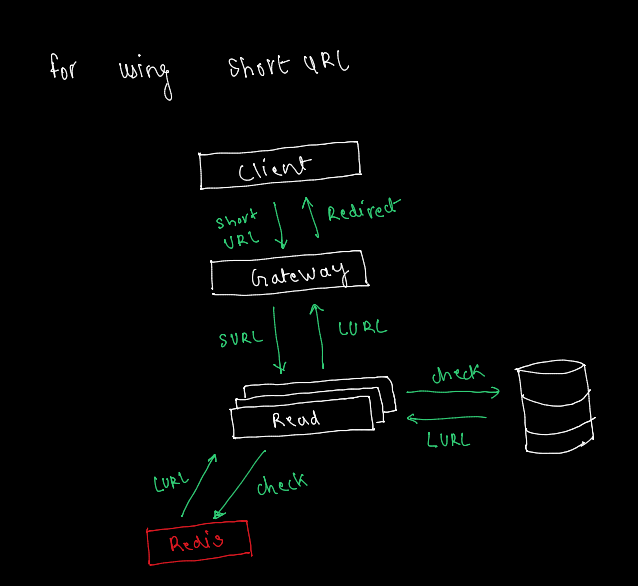 for using short URL
Client
short
URL
Redirect
Gateway
SURL
LURL
check
Read
LURL
LURL
check
Redis